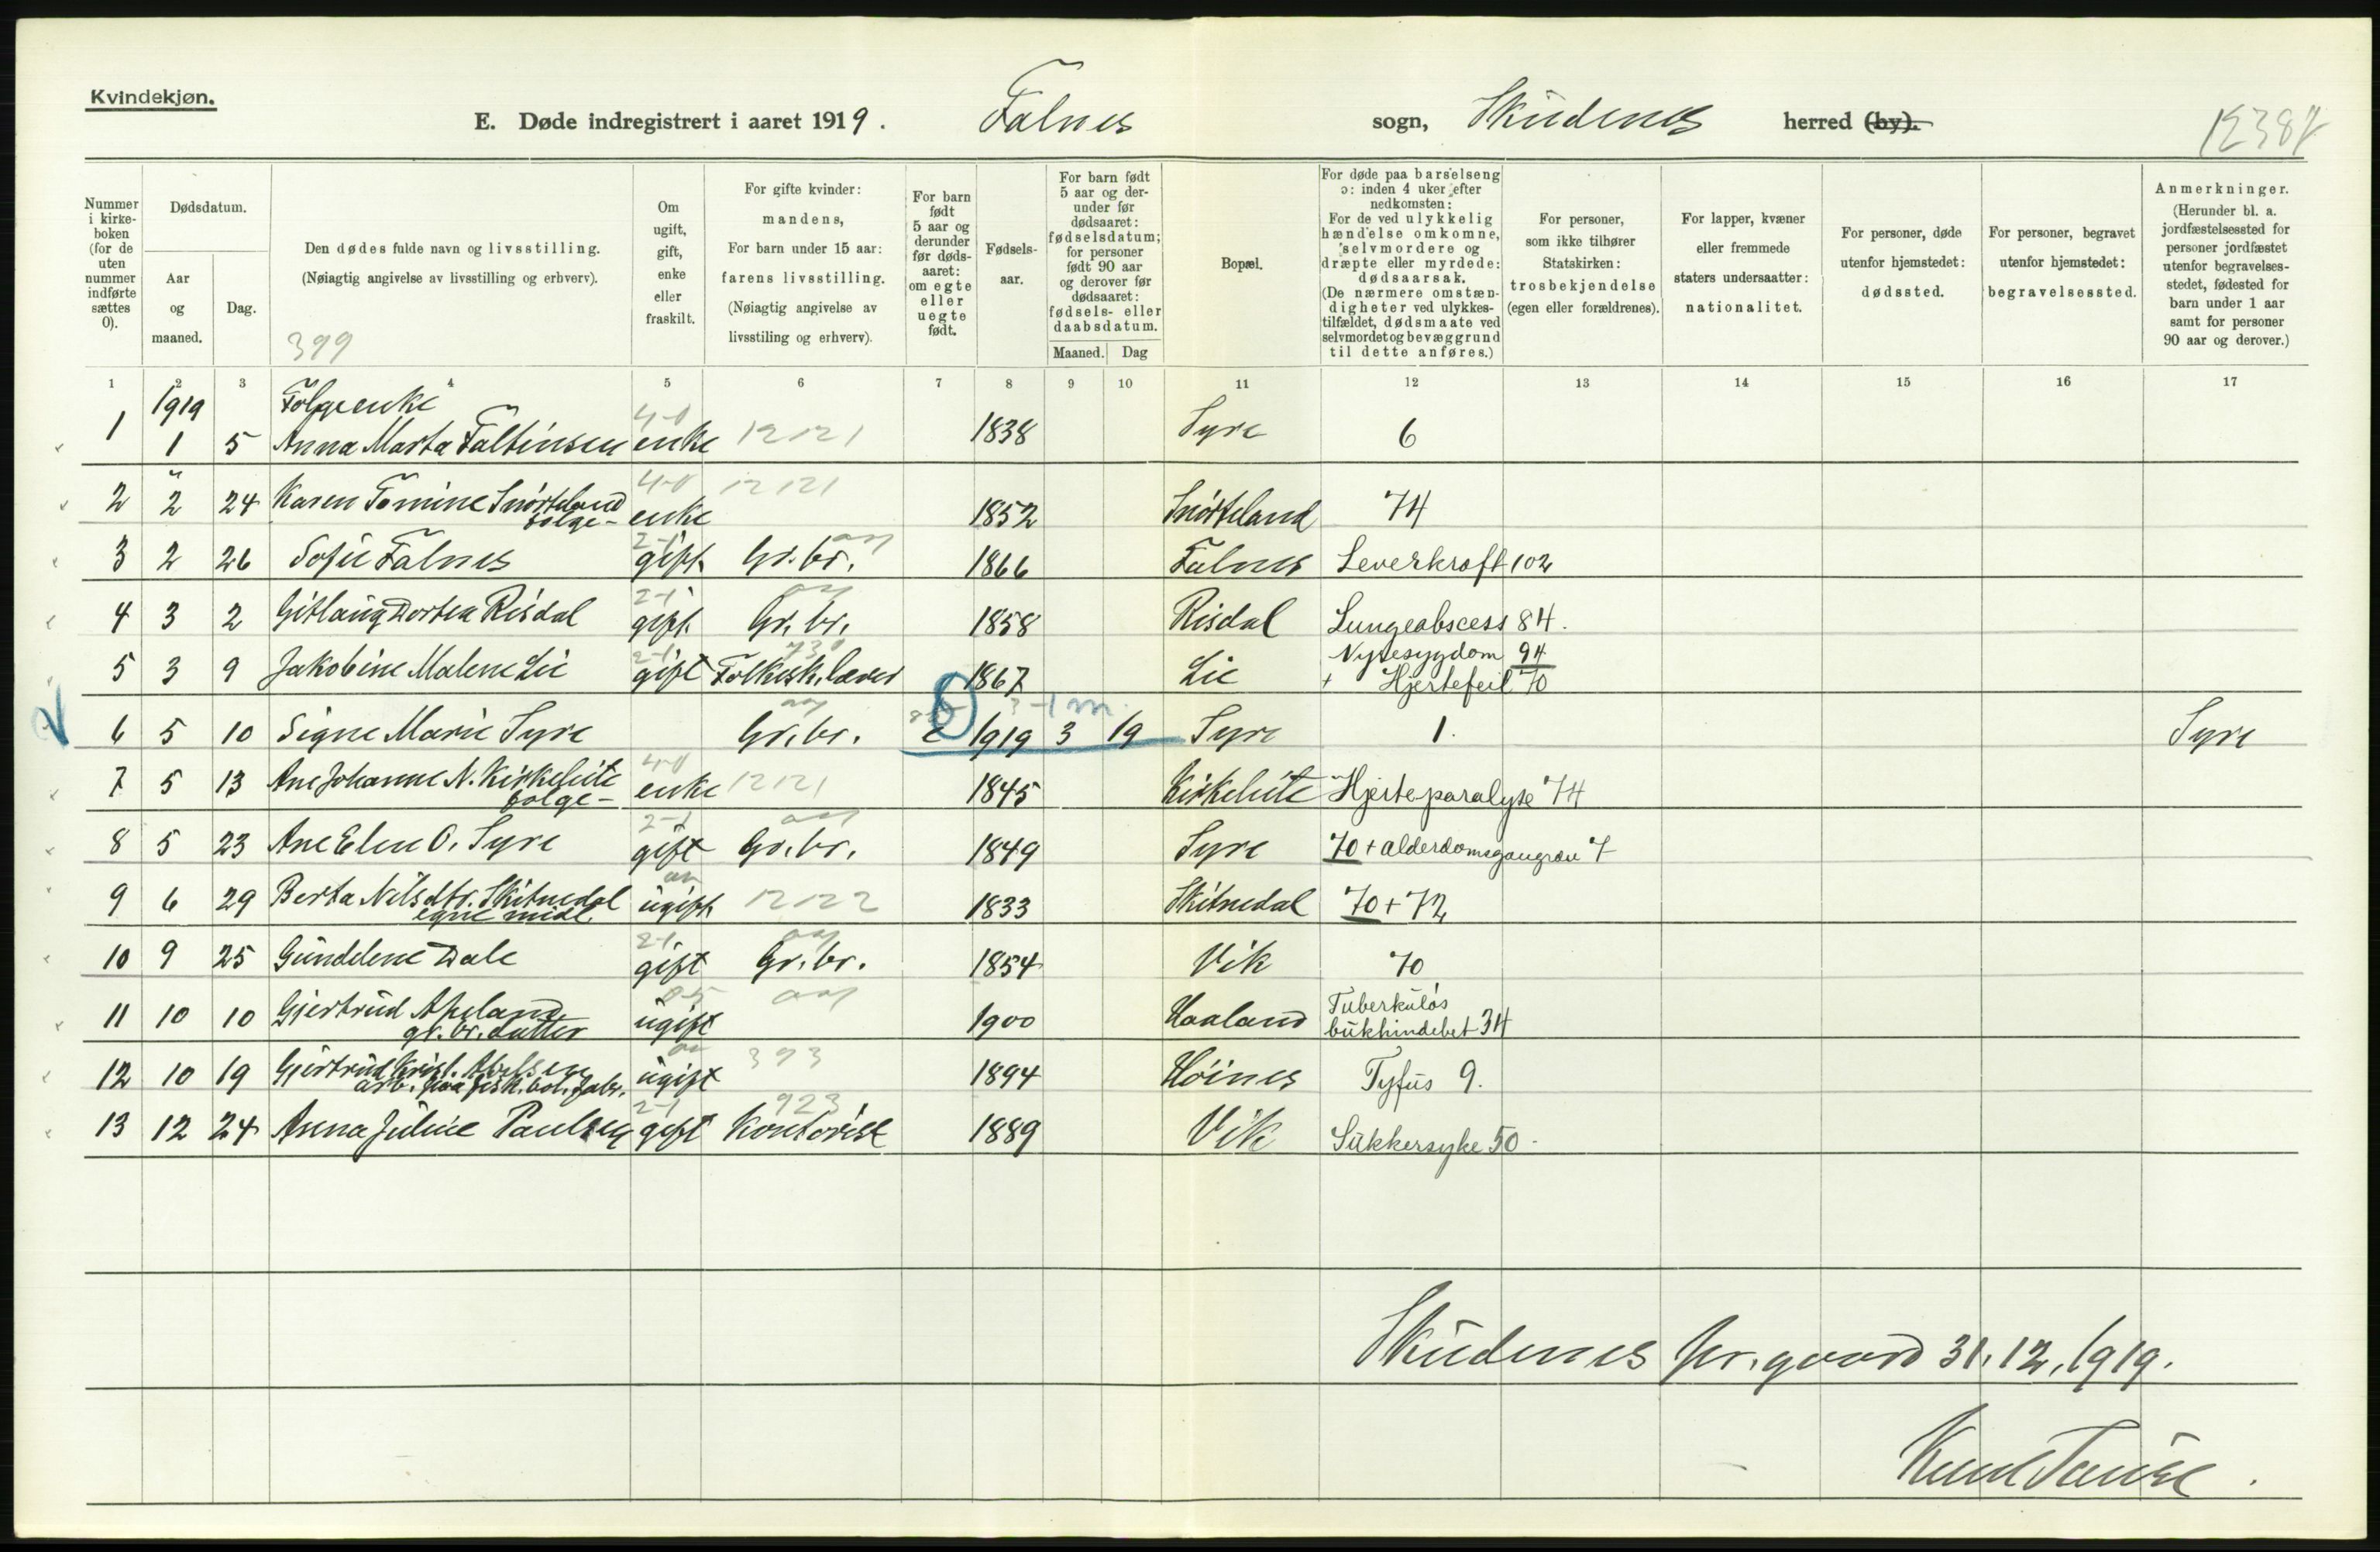 Kvindekjøn.
E. Døde indregistrert i aaret 1919. Falnes sogn, Skudenes herred (by).
Nummer i kirke-boken (for de uten nummer indførte sættes 0).
Dødsdatum.
Aar og maaned.
Dag.
Den dødes fulde navn og livsstilling.
(Nøiagtig angivelse av livsstilling og erhverv).
399
Om ugift, gift, enke eller fraskilt.
For gifte kvinder: mandens,
For barn under 15 aar: farens livsstilling.
(Nøiagtig angivelse av livsstiling og erhverv).
For barn født 5 aar og derunder før døds-aaret: om egte eller uegte født.
Fødsels-aar.
For barn født 5 aar og der-under før dødsaaret: fødselsdatum; for personer født 90 aar og derover før dødsaaret: fødsels- eller daabsdatum.
Maaned. Dag
Bopæl.
For døde paa barselseng ɔ: inden 4 uker efter nedkomsten:
For de ved ulykkelig hændelse omkomne, selvmordere og dræpte eller myrdede: dødsaarsak.
(De nærmere omstæn-digheter ved ulykkes-tilfældet, dødsmaate ved selvmordet og bevæggrund til dette anføres.)
For personer, som ikke tilhører Statskirken: trosbekjendelse (egen eller forældrenes).
For lapper, kvæner eller fremmede staters undersaatter: nationalitet.
For personer, døde utenfor hjemstedet: dødssted.
For personer, begravet utenfor hjemstedet: begravelsessted.
Anmerkninger.
(Herunder bl. a. jordfæstelsessted for personer jordfæstet utenfor begravelses-stedet, fødested for barn under 1 aar samt for personer 90 aar og derover.)
1 2 3 4 5 6 7 8 9 10 11 12 13 14 15 16 17
1919 Folgeenke 4-0
1 1 5 Anna Marta Faltinsen enke 12121 1838 Syre 6
" 4-0 12121
2 2 24 Karen Tomine Snørteland folge- enke 1852 Snørteland 74
2-1
3 2 26 Sofie Falnes gift Gr.br. 1866 Falnes Leverkræft 102
2-1
4 3 2 Gitlaug Dortea Risdal gift Gr.br. 1858 Risdal Lungeabscess 84.
2-1 730
5 3 9 Jakobine Malene Lie gift Folkesk.lærer 1867 Lie Nyresygdom 94
+ Hjertefeil 70
3-1 m.
6 5 10 Signe Marie Syre Gr.br. e 1919 3 19 Syre 1. Syre
4-0
7 5 13 Ane Johanne N. Kirkeleite folge- enke 12121 1845 Kirkeleite Hjerteparalyse 74
2-1
8 5 23 Ane Elen O. Syre gift Gr.br. 1849 Syre 70 + alderdomsgangræn 7
9 6 29 Berta Nilsdtr. Skitnedal egne midl. ugift 12122 1833 Skitnedal 70 + 72
2-1
10 9 25 Gundelene Dale gift Gr.br. 1854 Vik 70
11 10 10 Gjertrud Apeland gr.br.datter ugift 1900 Haaland Tuberkuløs
bukhindebet 34
12 10 19 Gjertrud Krist. Abelsen arb. paa fisk.bol.fabr. ugift 393 1894 Høines Tyfus 9.
2-1 923
13 12 24 Anna Juline Paulsen gift Kontorist 1889 Vik Sukkersyke 50
Skudenes pr.gaard 31.12.1919.